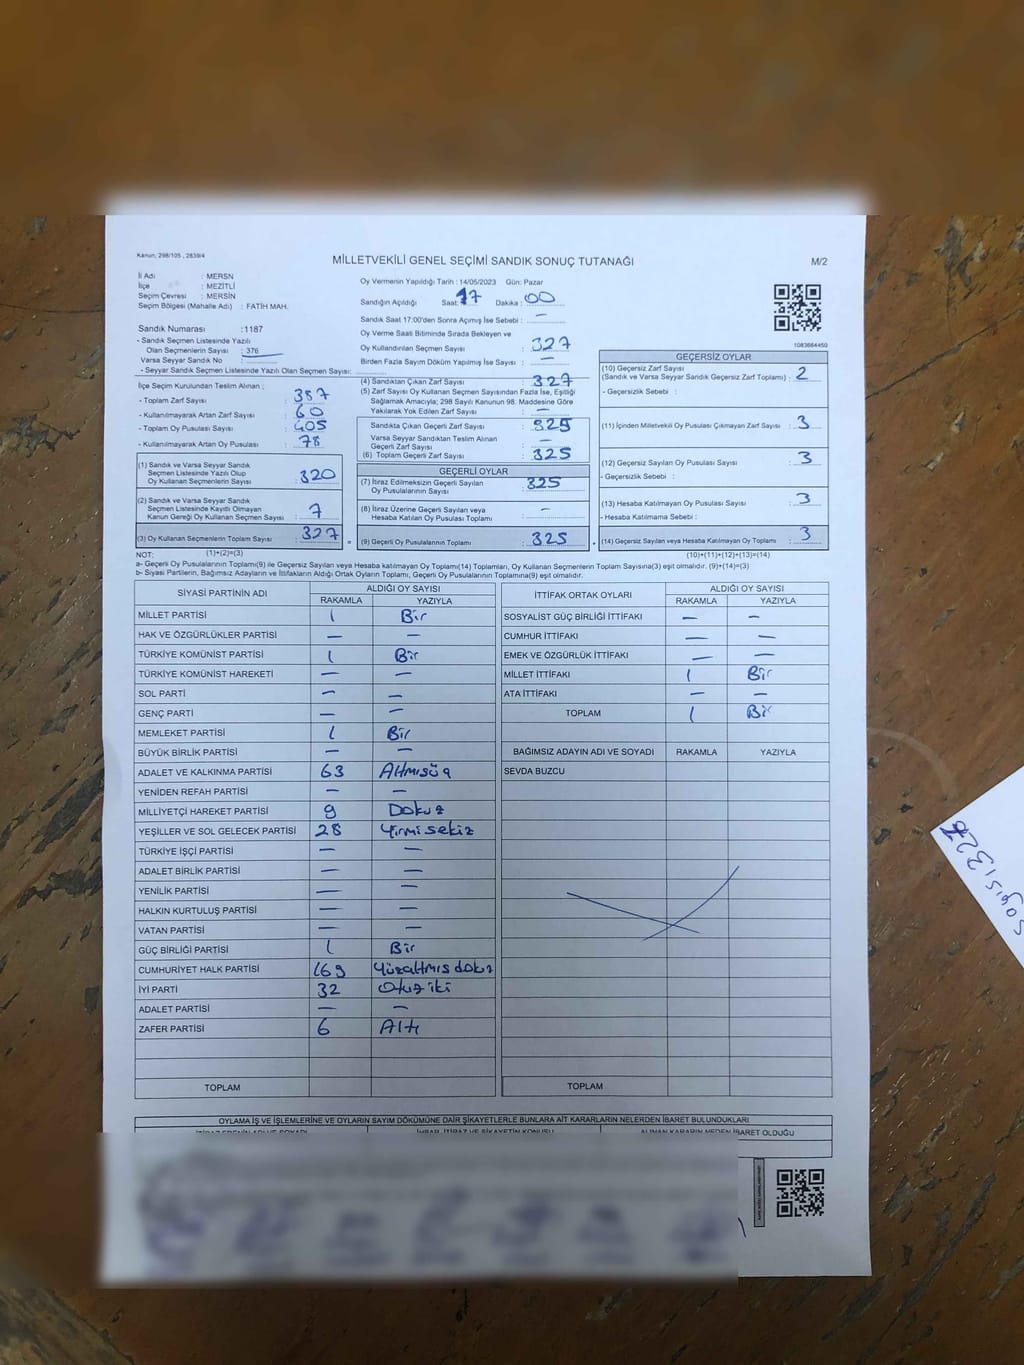 Kanun; 298/105 , 2839/4
MİLLETVEKİLİ GENEL SEÇİMİ SANDIK SONUÇ TUTANAĞI
M/2
İl Adı : MERSN
İlçe : MEZİTLİ
Seçim Çevresi : MERSİN
Seçim Bölgesi (Mahalle Adı) : FATİH MAH.
Sandık Numarası :1187
- Sandık Seçmen Listesinde Yazılı
Olan Seçmenlerin Sayısı : 376
Varsa Seyyar Sandık No :
- Seyyar Sandık Seçmen Listesinde Yazılı Olan Seçmen Sayısı:
Oy Vermenin Yapıldığı Tarih : 14/05/2023 Gün: Pazar
Sandığın Açıldığı Saat: 17 Dakika : 00
Sandık Saat 17:00'den Sonra Açımış İse Sebebi : —
Oy Verme Saati Bitiminde Sırada Bekleyen ve
Oy Kullandırılan Seçmen Sayısı : 327
Birden Fazla Sayım Döküm Yapılmış İse Sayısı : —
1083664450
İlçe Seçim Kurulundan Teslim Alınan ;
- Toplam Zarf Sayısı : 387
- Kullanılmayarak Artan Zarf Sayısı : 60
- Toplam Oy Pusulası Sayısı : 405
- Kullanılmayarak Artan Oy Pusulası : 78
(1) Sandık ve Varsa Seyyar Sandık
Seçmen Listesinde Yazılı Olup
Oy Kullanan Seçmenlerin Sayısı : 320
(2) Sandık ve Varsa Seyyar Sandık
Seçmen Listesinde Kayıtlı Olmayan
Kanun Gereği Oy Kullanan Seçmen Sayısı : 7
(3) Oy Kullanan Seçmenlerin Toplam Sayısı : 327
(1)+(2)=(3)
(4) Sandıktan Çıkan Zarf Sayısı : 327
(5) Zarf Sayısı Oy Kullanan Seçmen Sayısından Fazla İse, Eşitliği
Sağlamak Amacıyla; 298 Sayılı Kanunun 98. Maddesine Göre
Yakılarak Yok Edilen Zarf Sayısı : —
Sandıkta Çıkan Geçerli Zarf Sayısı : 325
Varsa Seyyar Sandıktan Teslim Alınan
Geçerli Zarf Sayısı : —
(6) Toplam Geçerli Zarf Sayısı : 325
GEÇERLİ OYLAR
(7) İtiraz Edilmeksizin Geçerli Sayılan
Oy Pusulalarının Sayısı : 325
(8) İtiraz Üzerine Geçerli Sayılan veya
Hesaba Katılan Oy Pusulası Toplamı : —
= (9) Geçerli Oy Pusulalarının Toplamı : 325
GEÇERSİZ OYLAR
(10) Geçersiz Zarf Sayısı
(Sandık ve Varsa Seyyar Sandık Geçersiz Zarf Toplamı) : 2
- Geçersizlik Sebebi :
(11) İçinden Milletvekili Oy Pusulası Çıkmayan Zarf Sayısı : 3
(12) Geçersiz Sayılan Oy Pusulası Sayısı : 3
- Geçersizlik Sebebi :
(13) Hesaba Katılmayan Oy Pusulası Sayısı : 3
- Hesaba Katılmama Sebebi :
+ (14) Geçersiz Sayılan veya Hesaba Katılmayan Oy Toplamı : 3
(10)+(11)+(12)+(13)=(14)
NOT:
a- Geçerli Oy Pusulalarının Toplamı(9) ile Geçersiz Sayılan veya Hesaba Katılmayan Oy Toplamı(14) Toplamları, Oy Kullanan Seçmenlerin Toplam Sayısına(3) eşit olmalıdır. (9)+(14)=(3)
b- Siyasi Partilerin, Bağımsız Adayların ve İttifakların Aldığı Ortak Oyların Toplamı, Geçerli Oy Pusulalarının Toplamına(9) eşit olmalıdır.
SİYASİ PARTİNİN ADI ALDIĞI OY SAYISI
RAKAMLA YAZIYLA
MİLLET PARTİSİ 1 Bir
HAK VE ÖZGÜRLÜKLER PARTİSİ — —
TÜRKİYE KOMÜNİST PARTİSİ 1 Bir
TÜRKİYE KOMÜNİST HAREKETİ — —
SOL PARTİ — —
GENÇ PARTİ — —
MEMLEKET PARTİSİ 1 Bir
BÜYÜK BİRLİK PARTİSİ — —
ADALET VE KALKINMA PARTİSİ 63 Altmışüç
YENİDEN REFAH PARTİSİ — —
MİLLİYETÇİ HAREKET PARTİSİ 9 Dokuz
YEŞİLLER VE SOL GELECEK PARTİSİ 28 Yirmi sekiz
TÜRKİYE İŞÇİ PARTİSİ — —
ADALET BİRLİK PARTİSİ — —
YENİLİK PARTİSİ — —
HALKIN KURTULUŞ PARTİSİ — —
VATAN PARTİSİ — —
GÜÇ BİRLİĞİ PARTİSİ 1 Bir
CUMHURİYET HALK PARTİSİ 169 Yüzaltmış dokuz
İYİ PARTİ 32 Otuz iki
ADALET PARTİSİ — —
ZAFER PARTİSİ 6 Altı
TOPLAM
İTTİFAK ORTAK OYLARI ALDIĞI OY SAYISI
RAKAMLA YAZIYLA
SOSYALİST GÜÇ BİRLİĞİ İTTİFAKI — —
CUMHUR İTTİFAKI — —
EMEK VE ÖZGÜRLÜK İTTİFAKI — —
MİLLET İTTİFAKI 1 Bir
ATA İTTİFAKI — —
TOPLAM 1 Bir
BAĞIMSIZ ADAYIN ADI VE SOYADI RAKAMLA YAZIYLA
SEVDA BUZCU
TOPLAM
OYLAMA İŞ VE İŞLEMLERİNE VE OYLARIN SAYIM DÖKÜMÜNE DAİR ŞİKAYETLERLE BUNLARA AİT KARARLARIN NELERDEN İBARET BULUNDUKLARI
İTİRAZ EDENİN ADI VE SOYADI İHBAR, İTİRAZ VE ŞİKAYETİN KONUSU ALINAN KARARIN NEDEN İBARET OLDUĞU
sayısı 327